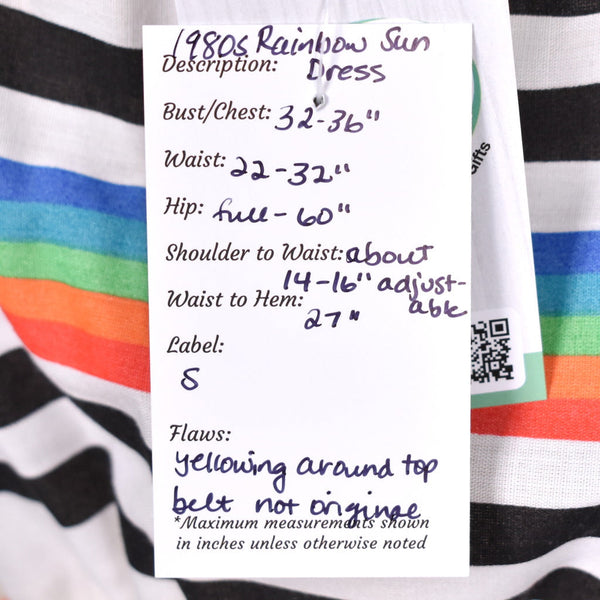 1980s Rainbow Sun
Description: Dress
Bust/Chest: 32-36"
Waist: 22-32"
Hip: full - 60"
Shoulder to Waist: about
14-16" adjust-
able
Waist to Hem:
27"
Label:
S
Flaws:
yellowing around top
belt not original
*Maximum measurements shown
in inches unless otherwise noted